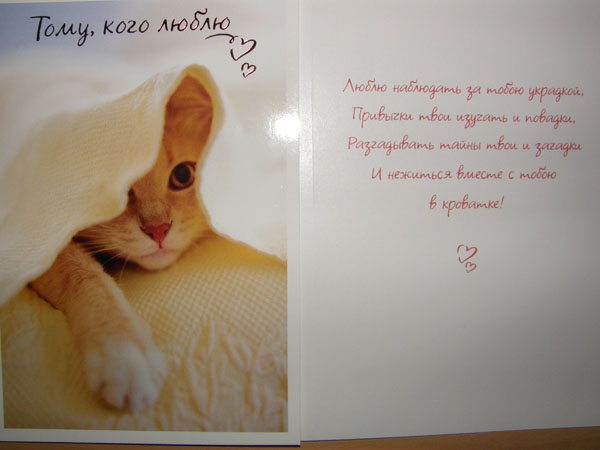 Тому, кого люблю
Люблю наблюдать за тобою украдкой,
Привычки твои изучать и повадки,
Разгадывать тайны твои и загадки
И нежиться вместе с тобою
в кроватке!